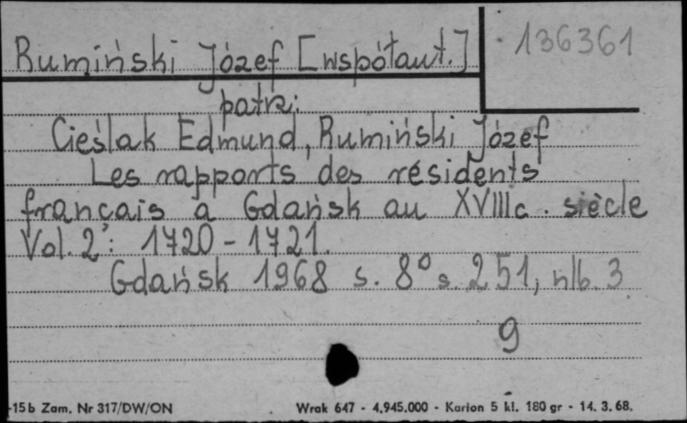 Rumiński Józef [współaut.]
136361
patrz:
Cieślak Edmund, Rumiński Józef
Les rapports des résidents
français à Gdańsk au XVIIIc. siècle
Vol. 2: 1720-1721.
Gdańsk 1968 s. 8° s. 251, nlb. 3
9
-15b Zam. Nr 317/DW/ON Wrak 647 - 4.945.000 - Karton 5 kl. 180 gr - 14. 3. 68.